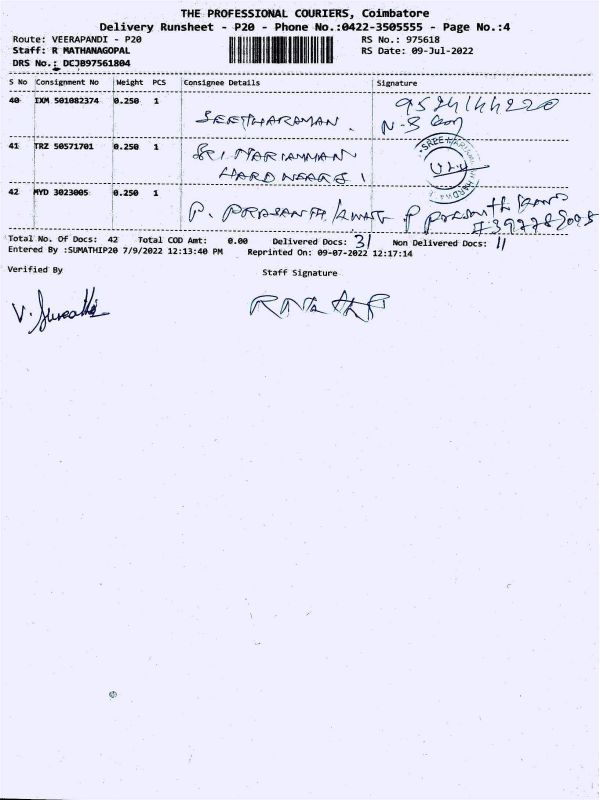 THE PROFESSIONAL COURIERS, Coimbatore
Delivery Runsheet - P20 - Phone No.:0422-3505555 - Page No.:4
Route: VEERAPANDI - P20 RS No.: 975618
Staff: R MATHANAGOPAL RS Date: 09-Jul-2022
DRS No.: DCJB97561804
S No Consignment No Weight PCS Consignee Details Signature
40 IXM 501082374 0.250 1
SEETHARAMAN.
41 TRZ 50571701 0.250 1
SRI MARIAMMAN
HARDWEARS
42 MYD 3023005 0.250 1
P. PRASANTH KUMAR
Total No. Of Docs: 42 Total COD Amt: 0.00 Delivered Docs: 31 Non Delivered Docs: 11
Entered By :SUMATHIP20 7/9/2022 12:13:40 PM Reprinted On: 09-07-2022 12:17:14
Verified By Staff Signature